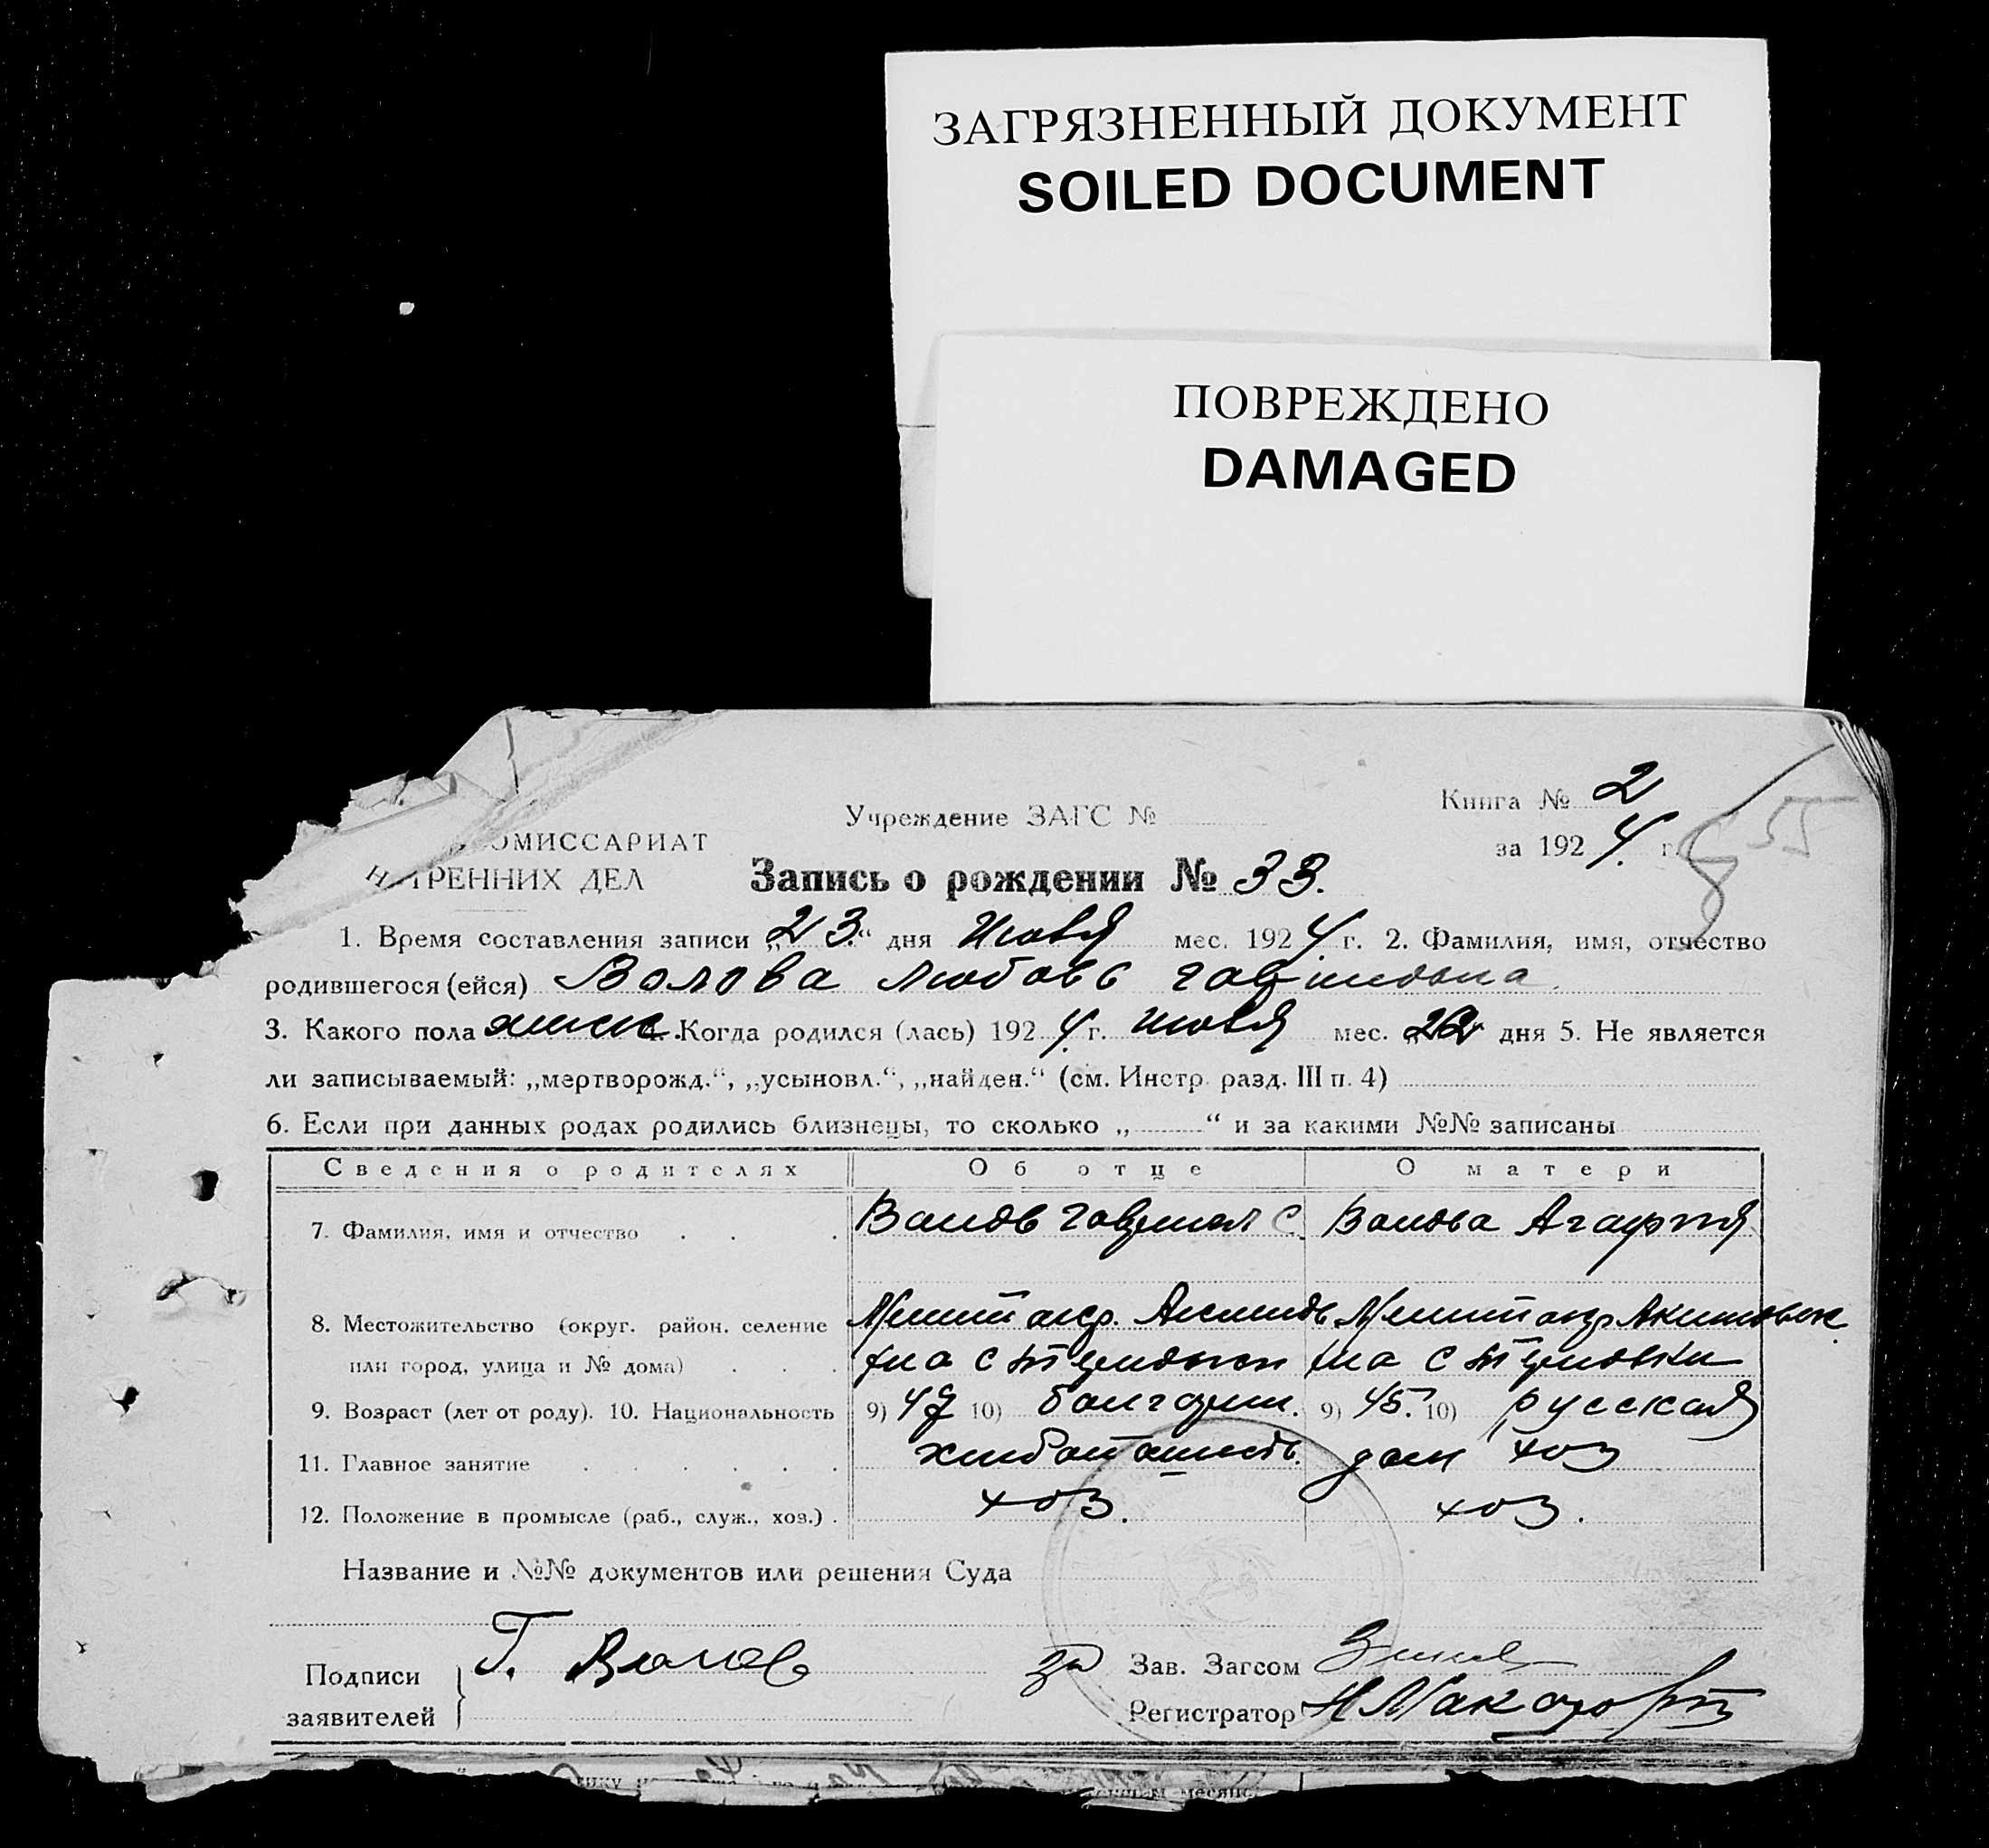 ЗАГРЯЗНЕННЫЙ ДОКУМЕНТ
SOILED DOCUMENT
ПОВРЕЖДЕНО
DAMAGED
Учреждение ЗАГС №
Книга № 2
55
ОМИССАРИАТ
за 1924 г.
ТРЕННИХ ДЕЛ
Запись о рождении № 33.
1. Время составления записи „23.“ дня Июля мес. 1924 г. 2. Фамилия, имя, отчество
родившегося (ейся) Волова Любовь
3. Какого пола женск. 4. Когда родился (лась) 1924 г. Июля мес. „22 дня 5. Не является
ли записываемый: „мертворожд.“, „усыновл.“, „найден.“ (см. Инстр. разд. III п. 4)
6. Если при данных родах родились близнецы, то сколько „ “ и за какими №№ записаны
Сведения о родителях Об отце О матери
7. Фамилия, имя и отчество Волов Гавриил С. Волова Агафия
8. Местожительство (округ. район. селение Мелит окр. Мелит окр
или город, улица и № дома)
9. Возраст (лет от роду). 10. Национальность 9) 47 10) болгарин. 9) 45. 10) русская
11. Главное занятие хлебопашеств. дом хоз
12. Положение в промысле (раб., служ., хоз.) хоз. хоз.
Название и №№ документов или решения Суда
Подписи Г. Волов За Зав. Загсом
заявителей Регистратор